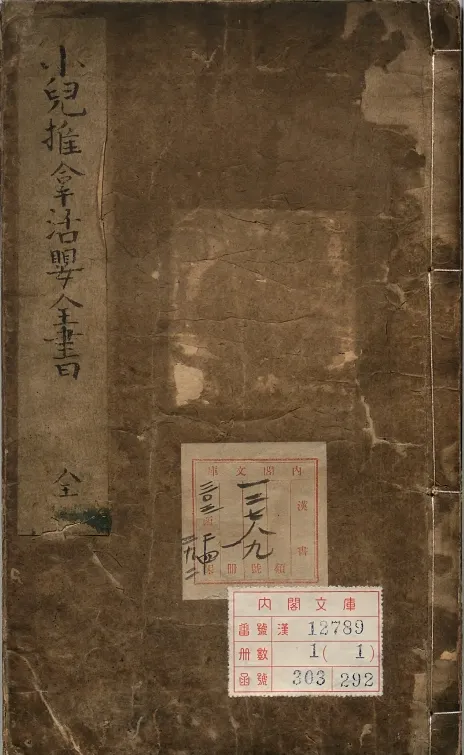 小兒推拿活嬰全書
全
內閣文庫
漢書
一二七八九
三〇三
內閣文庫
番號 漢 12789
册數 1( 1)
函號 303 292